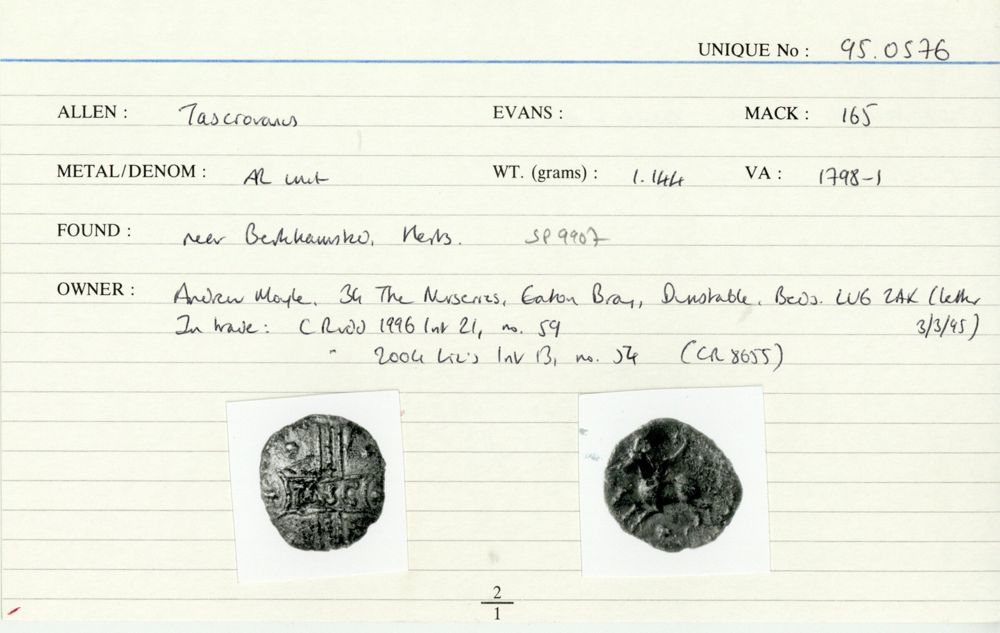 UNIQUE No : 95.0576
ALLEN : Tasciovanus EVANS : MACK : 165
METAL/DENOM : AR unit WT. (grams) : 1.144 VA : 1798-1
FOUND : near Berkhamsted, Herts. SP 9907
OWNER : Andrew Moyle, 34 The Nurseries, Eaton Bray, Dunstable, Beds. LU6 2AX (letter
In trade: C Rudd 1996 list 21, no. 59 3/3/95)
" 2004 Liz's list 13, no. 54 (CR 8655)
TASC
2
1